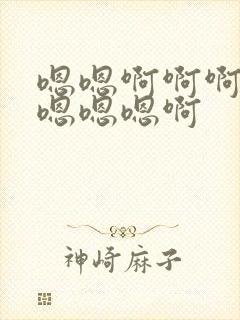 嗯嗯啊啊啊
嗯嗯嗯啊
神崎麻子